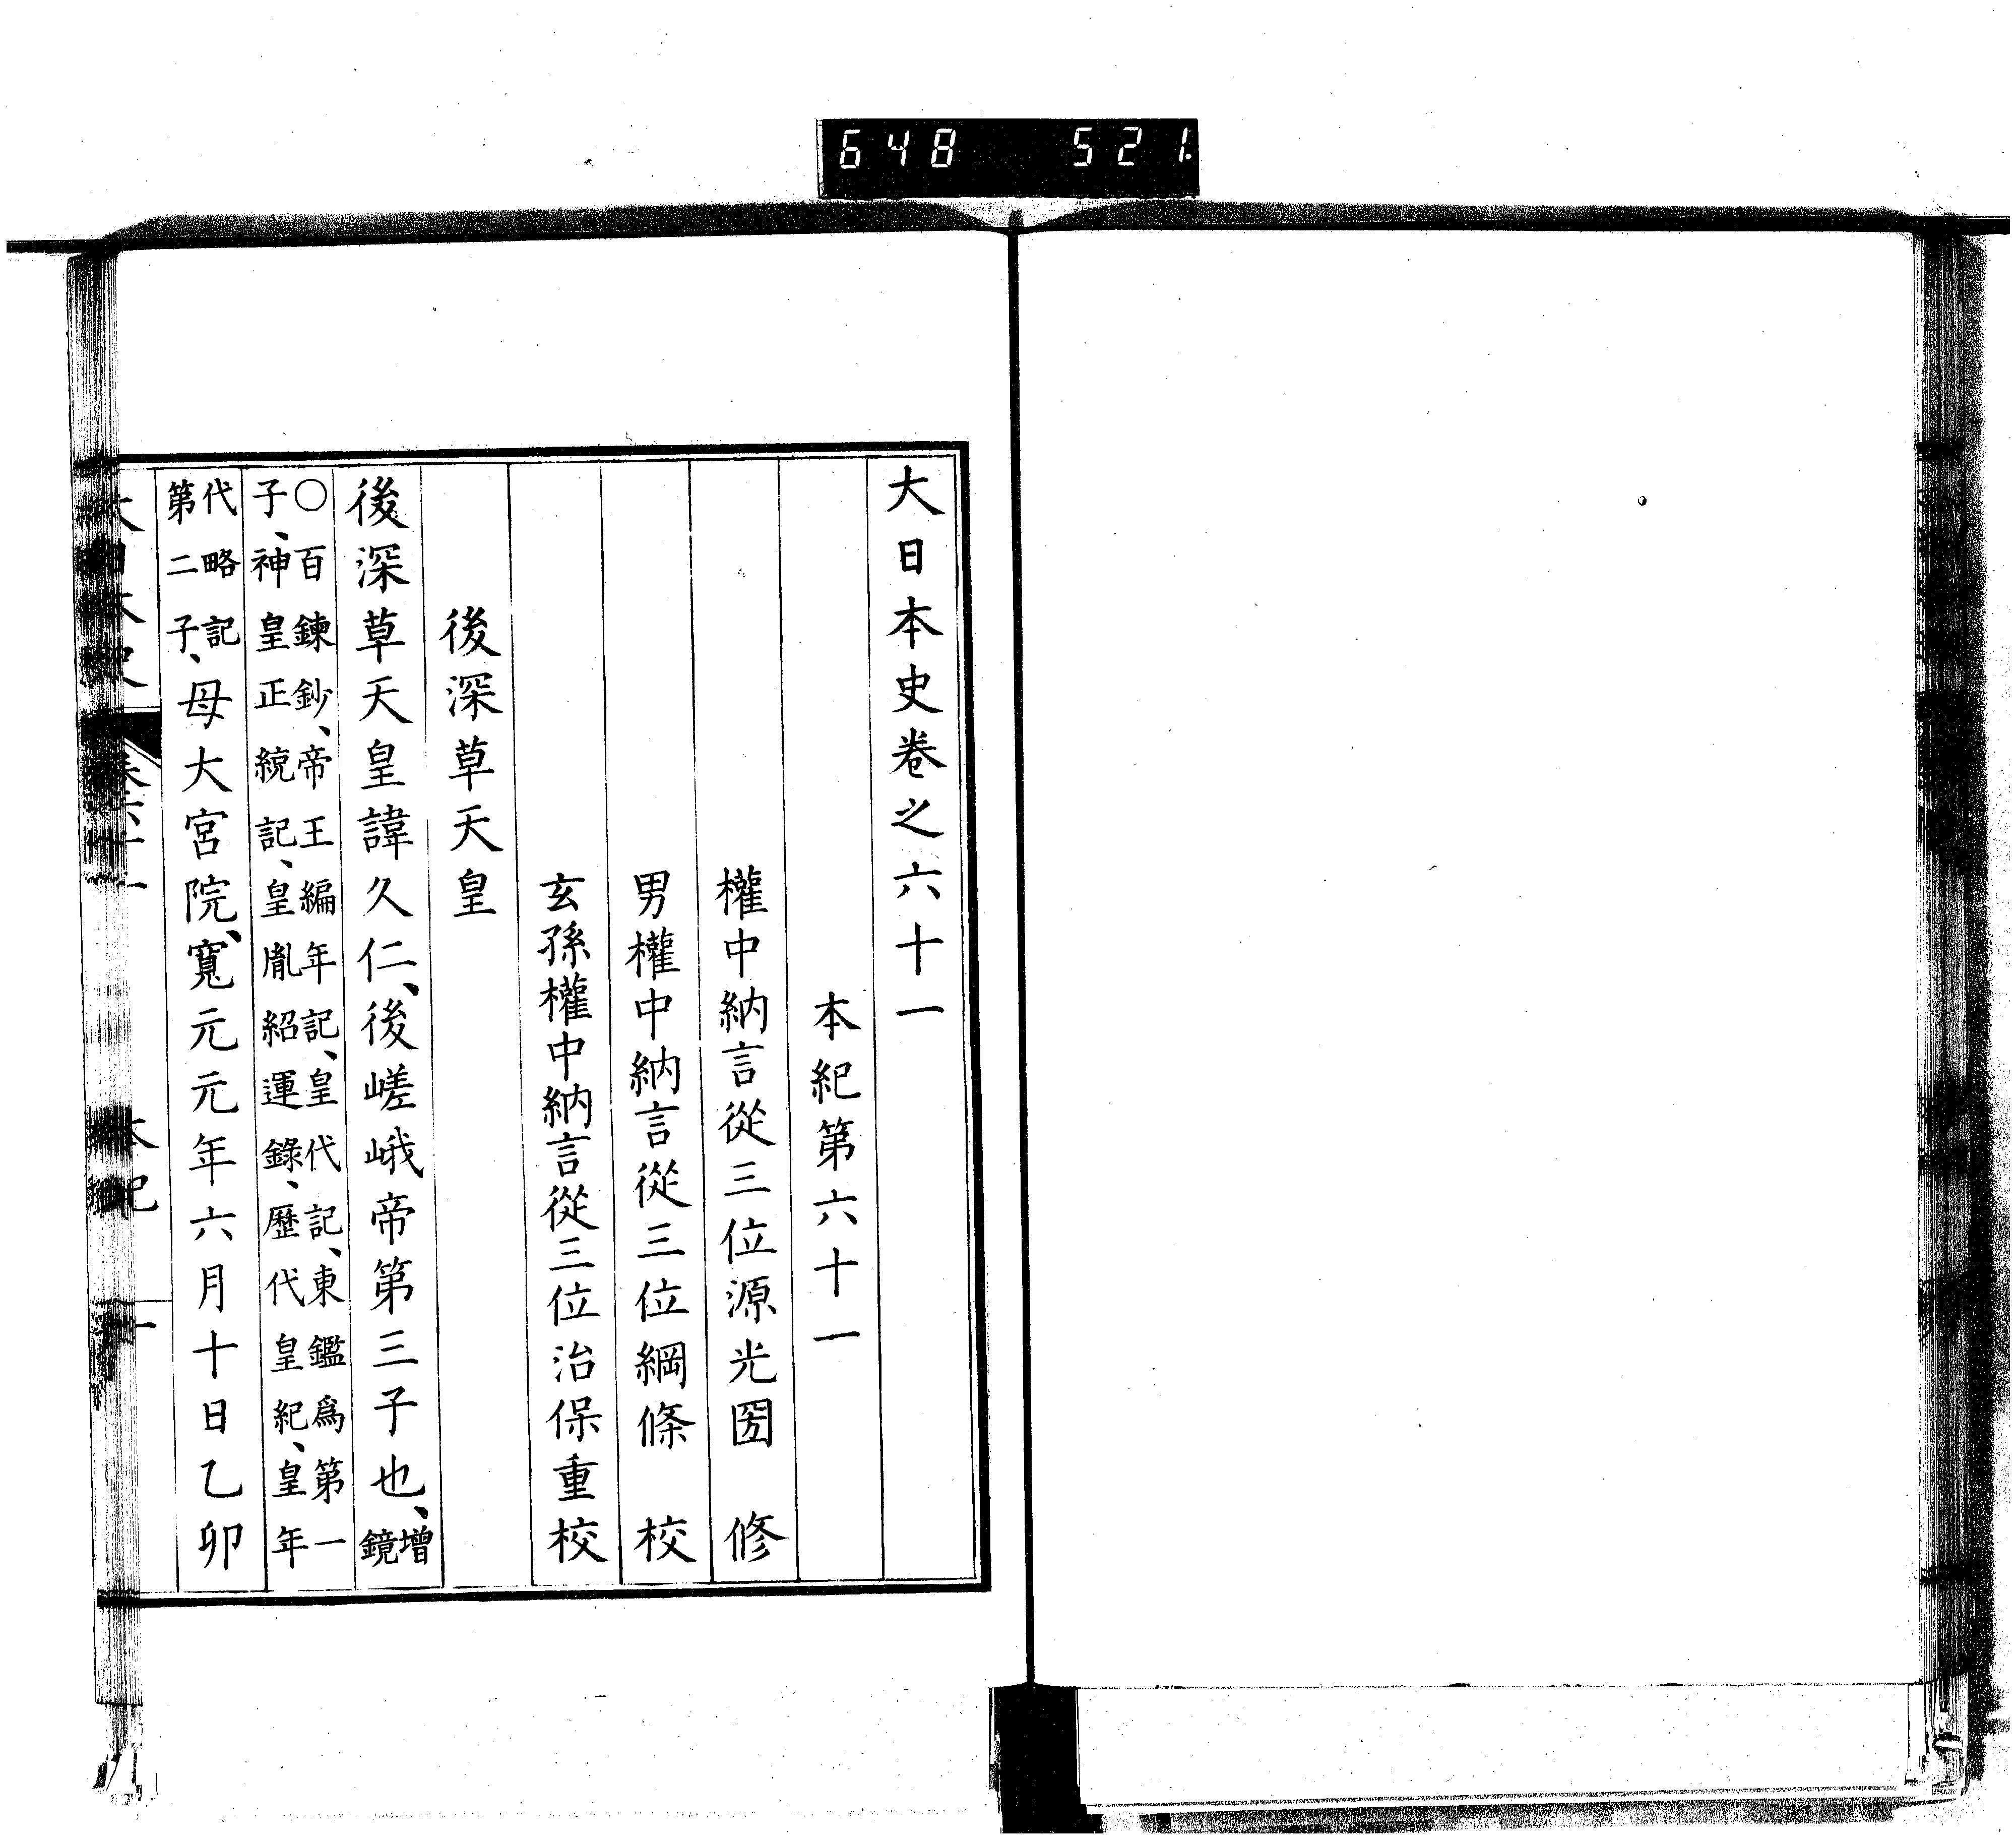 648 521
大日本史卷之六十一
本紀第六十一
權中納言從三位源光圀 修
男權中納言從三位綱條 校
玄孫權中納言從三位治保重校
後深草天皇
後深草天皇諱久仁、後嵯峨帝第三子也、增鏡
○百鍊鈔、帝王編年記、皇代記、東鑑爲第一
子、神皇正統記、皇胤紹運錄、歷代皇紀、皇年
代略記第二子、母大宮院、寬元元年六月十日乙卯
大日本史 卷六十一 本紀 一